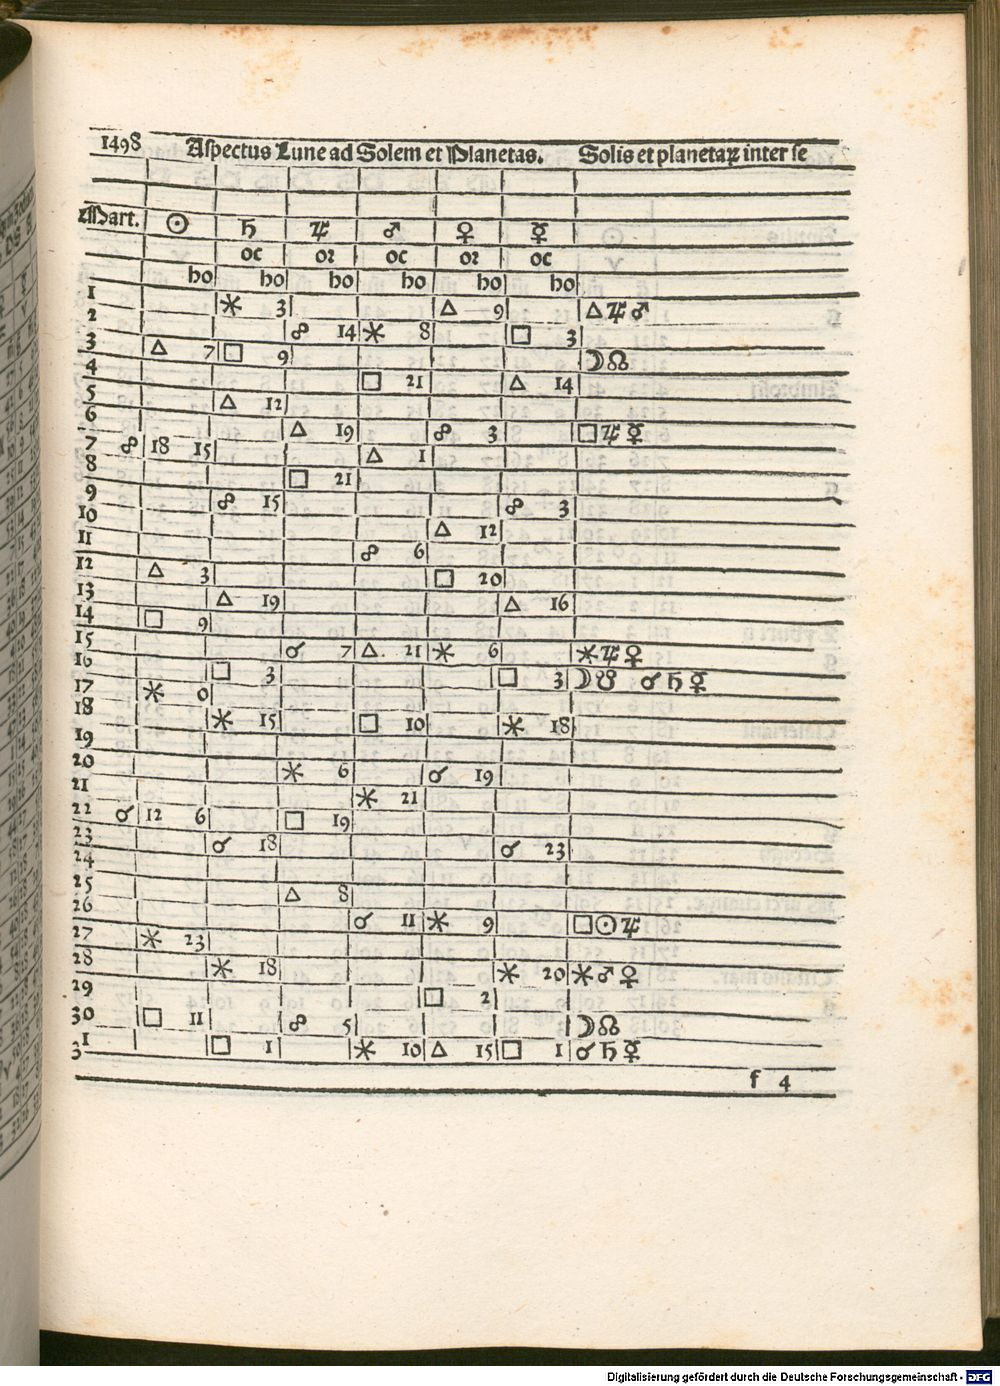 1498 Aſpectus Lune ad Solem et Planetas. Solis et planetaꝝ inter ſe
Mart. ☉ ♄ ♃ ♂ ♀ ☿
oc oꝛ oc oꝛ oc
ho ho ho ho ho ho
1 ✶ 3 △ 9 △ ♃ ♂
2 ☍ 14 ✶ 8 □ 3
3 △ 7 □ 9 ☽ ☊
4 □ 21 △ 14
5 △ 12
6 △ 19 ☍ 3 □ ♃ ☿
7 ☍ 18 15 △ 1
8 □ 21
9 ☍ 15 ☍ 3
10 △ 12
11 ☍ 6
12 △ 3 □ 20
13 △ 19 △ 16
14 □ 9
15 ☌ 7 △ 21 ✶ 6 ✶ ♃ ♀
16 □ 3 □ 3 ☽ ☋ ☌ ♄ ☿
17 ✶ 0
18 ✶ 15 □ 10 ✶ 18
19
20 ✶ 6 ☌ 19
21 ✶ 21
22 ☌ 12 6 □ 19
23 ☌ 18 ☌ 23
24
25 △ 8
26 ☌ 11 ✶ 9 □ ☉ ♃
27 ✶ 23
28 ✶ 18 ✶ 20 ✶ ♂ ♀
29 □ 2
30 □ 11 ☍ 5 ☽ ☊
31 □ 1 ✶ 10 △ 15 □ 1 ☌ ♄ ☿
f 4
Digitalisierung gefördert durch die Deutsche Forschungsgemeinschaft - DFG